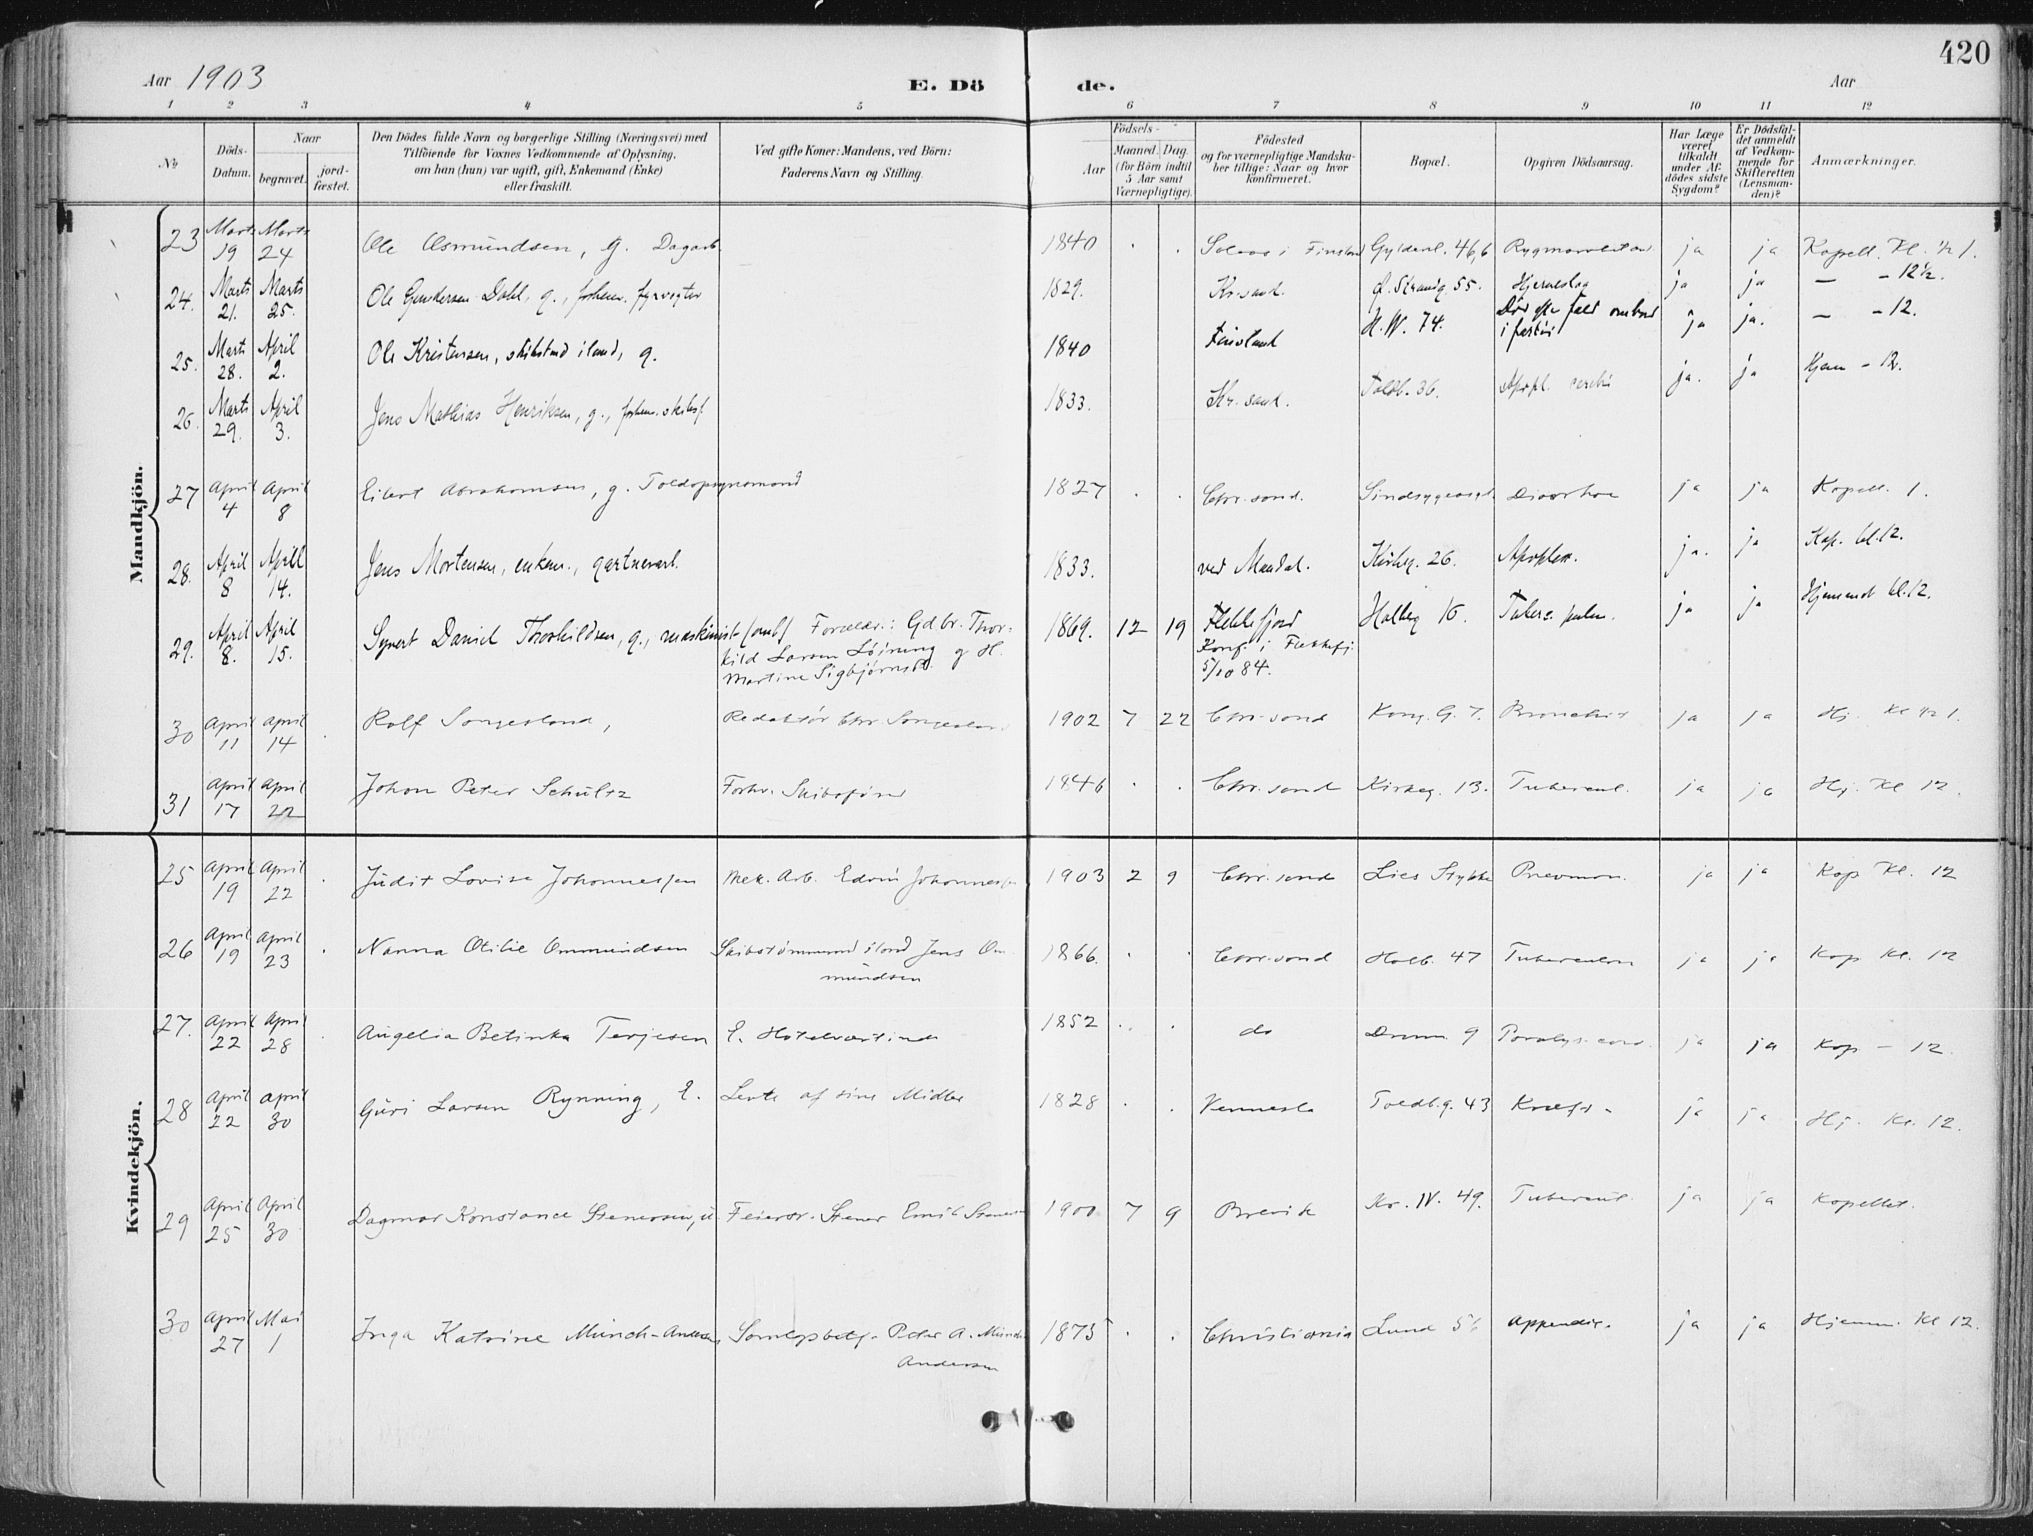 420
Aar 1903 E. Dö de. Aar
1 2 3 4 5 6 7 8 9 10 11 12
No
Döds-Datum.
Naar
begravet.
jordfæstet.
Den Dödes fulde Navn og borgerlige Stilling (Næringsvei) med
Tilföiende for Voxnes Vedkommende af Oplysning,
om han (hun) var ugift, gift, Enkemand (Enke)
eller fraskilt.
Ved gifte Koner: Mandens, ved Börn:
Faderens Navn og Stilling.
Födsels-
Aar
Maaned. Dag.
(for Börn indtil
5 Aar samt
Værnepligtige).
Födested
og for værnepligtige Mandska-
ber tillige: Naar og hvor
konfirmeret.
Bopæl.
Opgiven Dödsaarsag.
Har Læge
været
tilkaldt
under Af-
dödes sidste
Sygdom?
Er Dödsfal-
det anmeldt
af Vedkom-
mende for
Skifteretten
(Lensman-
den)?
Anmærkninger.
Mandkjön.
23 Marts 19 Marts 24 Ole Asmundsen, g. Dagarb. 1840 Finsland Gyldenl. 46,6 ja ja Kapell. Kl. ½ 1.
24. Marts 21. Marts 25. Ole Gundersen Dahl, g., forhenv. fyrvogter 1829. Kr.sand. Ø. Strandg. 55. Hjerneslag ja ja — - 12½.
25. Marts 28. April 2. Ole Kristensen, skibstmd iland, g. 1840 Finsland H. W. 74. Død efter fald ombord i fartøi ja ja. — - 12.
26. Marts 29. April 3. Jens Mathias Henriksen, g., forhenv. skibsf. 1833. Kr. sand. Toldb. 36. Apopl. cerebri ja. ja Hjem - 12.
27 April 4 April 8 Eilert Abrahamsen, g. Toldopsynsmand 1827 Chr. sand. Sindsygeasyl. Diaarhoe ja ja Kapell. 1.
28. April 8 April 14. Jens Mortensen, enkem., gartnerarb. 1833. ved Mandal. Kirkeg. 26. Apoplex. ja. ja Kap. kl. 12.
29. April 8. April 15. Syvert Daniel Thorkildsen, g., maskinist (omb) Forældr.: Gdbr. Thor-
kild Larsen Løining g H.
Martine Sigbjørnsd. 1869. 12 19 Flekkefjord
Konf. i Flekkefj.
5/10 84. Holbg 16 Tuberc. pulm. ja ja Hjemmet kl. 12.
30 April 11 April 14 Rolf Songesland, Redaktør Chr. Songesland 1902 7 22 Chr. sand Kong. G. 7. Bronchit ja ja Hj. Kl ½ 1.
31 April 17 April 22 Johan Peter Schültz Forhv. Skibsfører 1846 Chr. sand Kirkeg. 13. Tubercul. ja ja Hj. Kl 12.
Kvindekjön.
25 April 19 April 22 Judit Lovise Johannessen Mek. Arb. Edvin Johannessen 1903 2 9 Chr. sand Lies Stykke Pnevmon. ja ja Kap Kl. 12
26 April 19 April 23 Nanna Otilie Ommundsen Skibstømmermd iland Jens Om-
mundsen 1866. Chr. sand Holb. 47 Tuberculos ja ja Kap Kl. 12
27. April 22 April 28 Angelia Betinka Terjesen E. Hotelværtinde 1852 do Dronn. 9 Paralys. cord. ja ja Kap - 12.
28 April 22 April 30 Guri Larsen Rynning, E. Levte af sine Midler 1828 Vennesla Toldb.g. 43 Kræft - ja ja Hj. Kl. 12.
29 April 25 April 30 Dagmar Konstance Stenersen, u. Feiersv. Stener Emil Stenersen 1900 7 9 Brevik Kr. W. 49. Tubercul. ja ja Kapellet.
30 April 27 Mai 1 Inga Katrine Münch-Andersen, Peter A. Münch
Andersen 1875 Christiania Lund 56 Appendic. ja ja Hjemm. Kl 12.